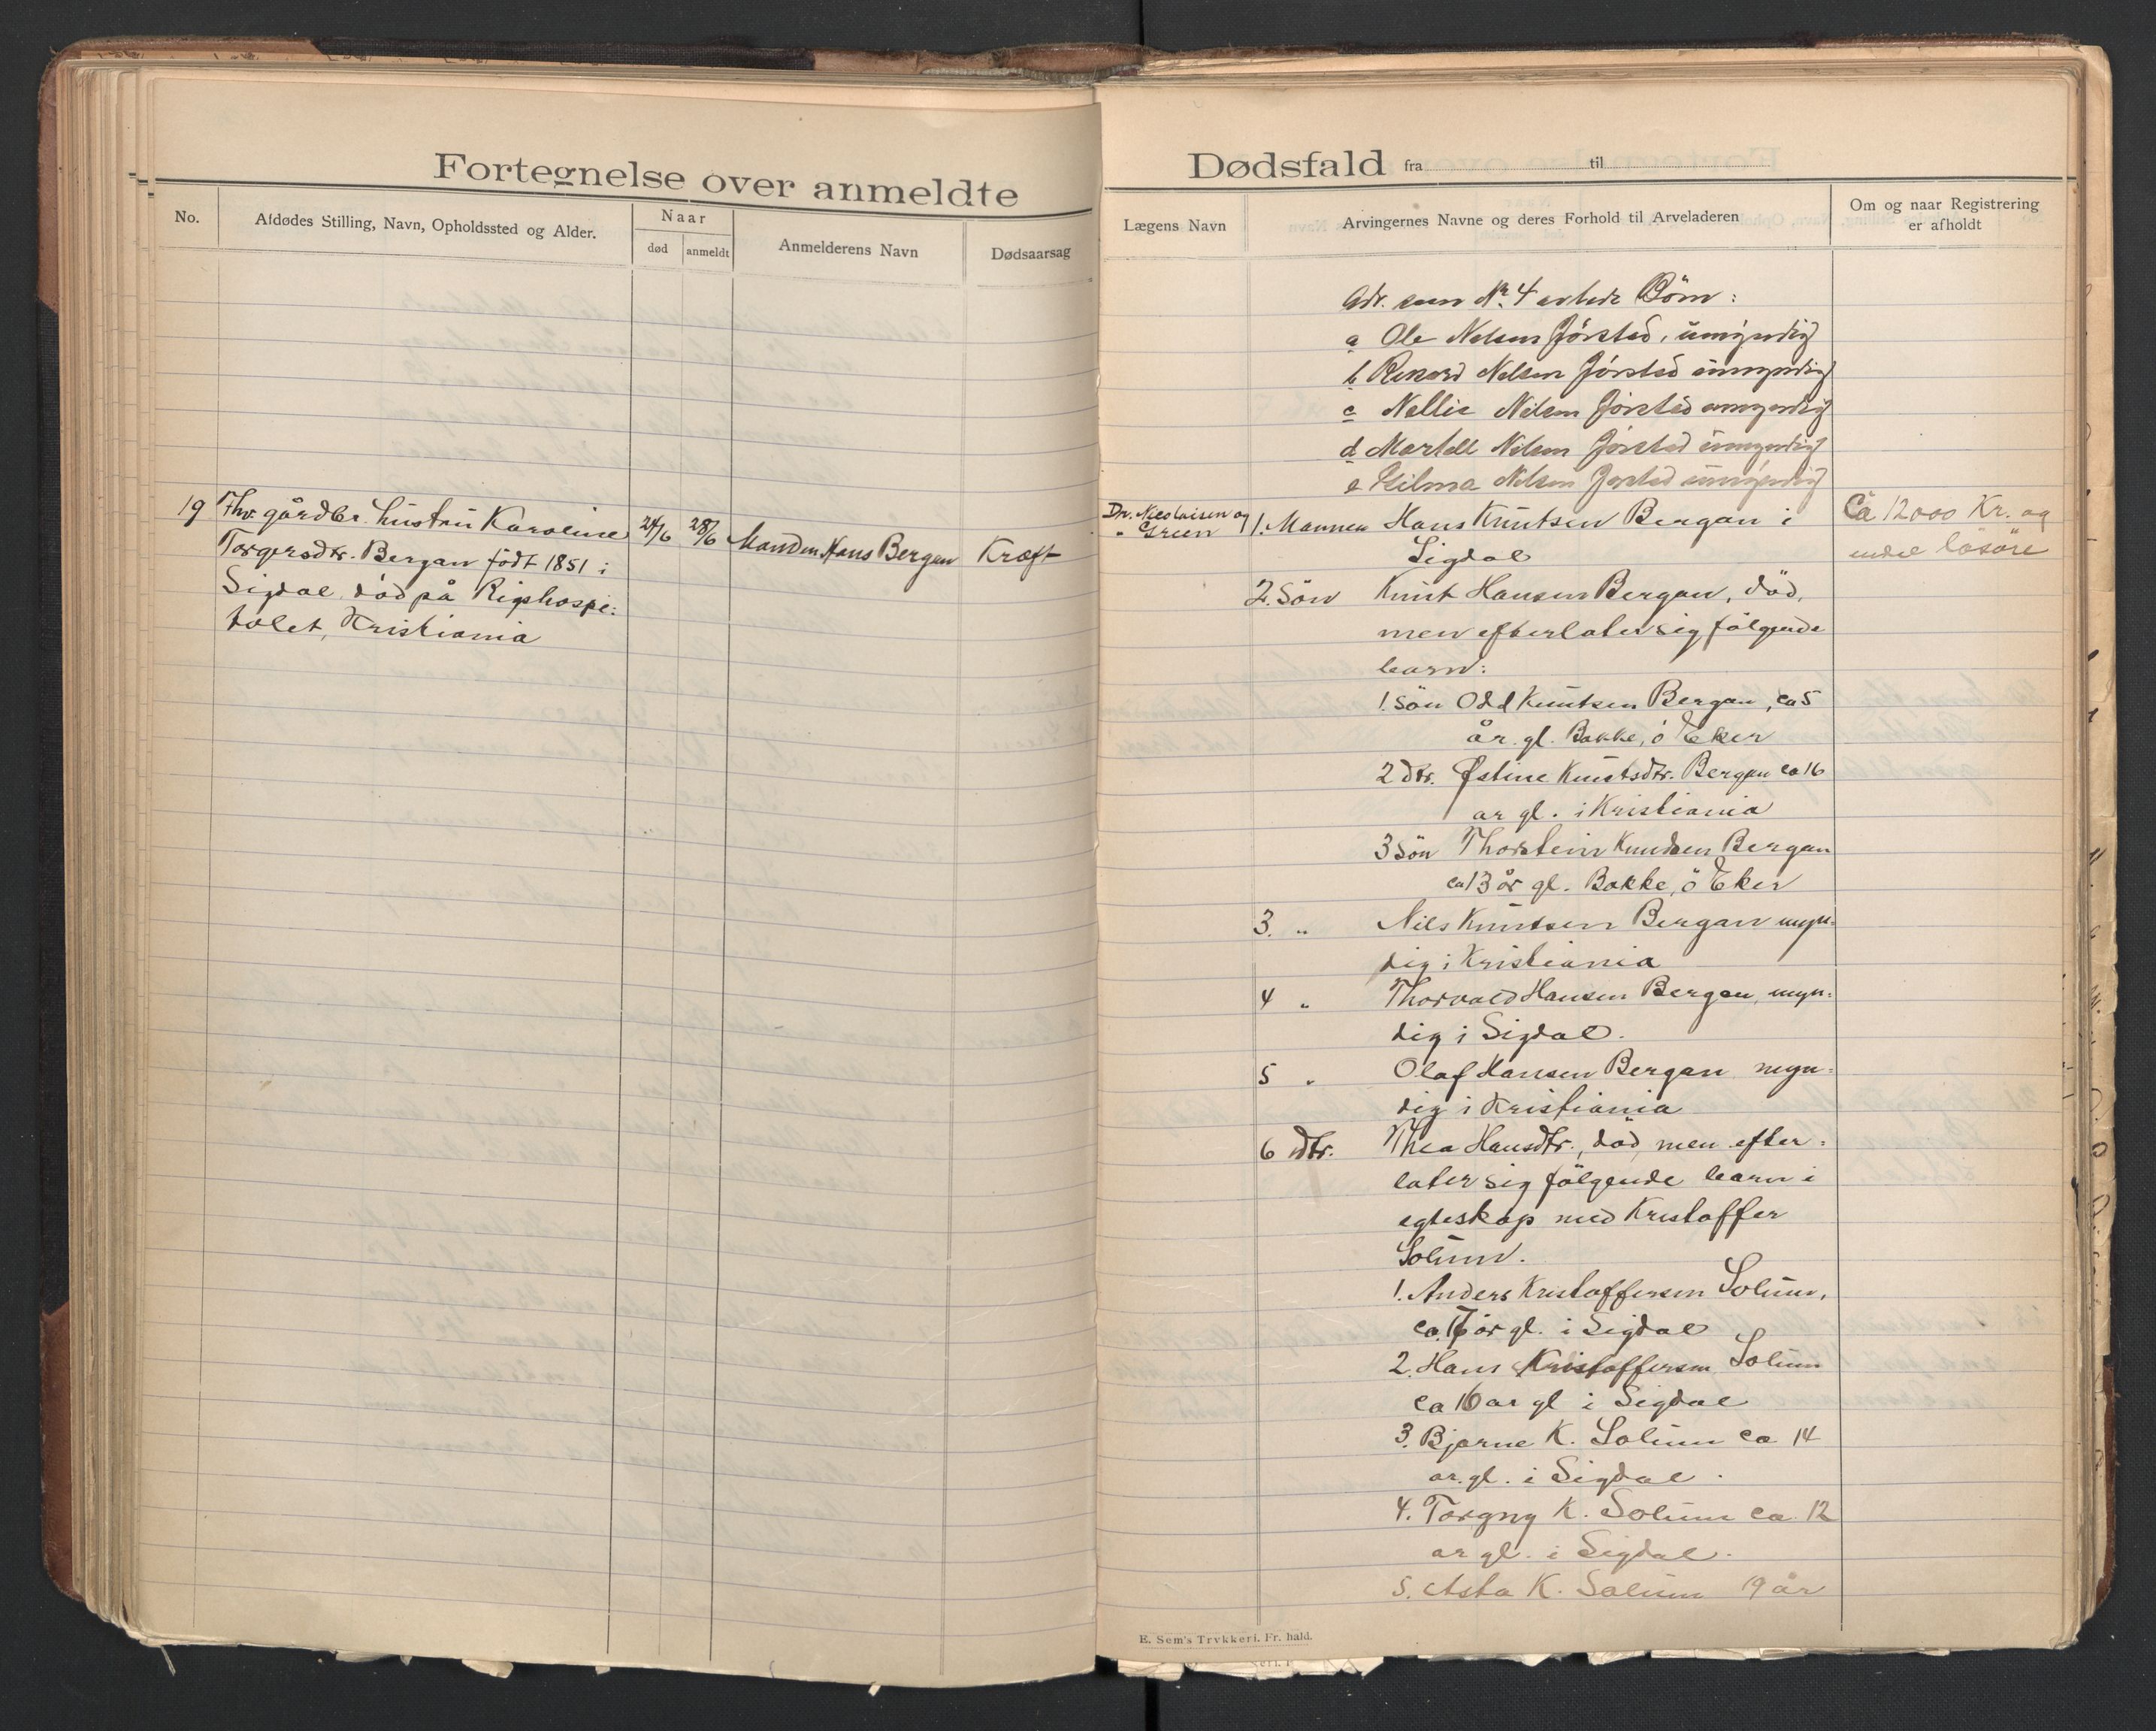 Fortegnelse over anmeldte
No.
Afdødes Stilling, Navn, Opholdssted og Alder.
Naar
død
anmeldt
Anmelderens Navn
Dødsaarsag
19
Fhv. gårdbr. hustru Karoline
Torgersdtr. Bergan født 1851 i
Sigdal død på Rigshospi-
talet, Kristiania
24/6
28/6
Manden Hans Bergan
Kræft
Dødsfald fra til
Lægens Navn
Arvingernes Navne og deres Forhold til Arveladeren
Om og naar Registrering
er afholdt
Adr. som Nr. 4 avdøde Börn:
a Ole Nelsen Jörstad, umyndig
b Nelsen Jörstad umyndig
c Nellie Nelsen Jörstad umyndig
d Nelsen Jörstad umyndig
e Hilma Nelsen Jörstad umyndig
Dr. Nicolaisen og
" Green
1. Mannen Hans Knutsen Bergan i
Sigdal
Ca 12000 Kr. og
endel lösöre
2. Sön Knut Hansen Bergan, död,
men efterlater sig fölgende
barn:
1. Sön Odd Knutsen Bergan, ca 5
år gl. Bakke, ö Eker
2 dtr. Østine Knutsdtr. Bergan ca 16
ar gl. i Kristiania
3 Sön Thorstein Knudsen Bergan
ca 13 år gl. Bakke, ö Eker
3. " Nils Knutsen Bergan myn-
dig i Kristiania
4 " Thorvald Hansen Bergan, myn-
dig i Sigdal.
5 " Olaf Hansen Bergan myn-
dig i Kristiania
6 dtr. Thea Hansdtr., död, men efter-
later sig fölgende barn i
egteskap med Kristoffer
Solum.
1. Anders Kristoffersen Solum,
ca. 17 år gl. i Sigdal
2. Hans Kristoffersen Solum
ca 16 ar gl i Sigdal
3. Bjarne K. Solum ca 14
ar. gl. i Sigdal.
4. Torgny K. Solum ca 12
ar gl. i Sigdal.
5. Asta K. Solum 19 år
E. Sem's Trykkeri. Fr. hald.